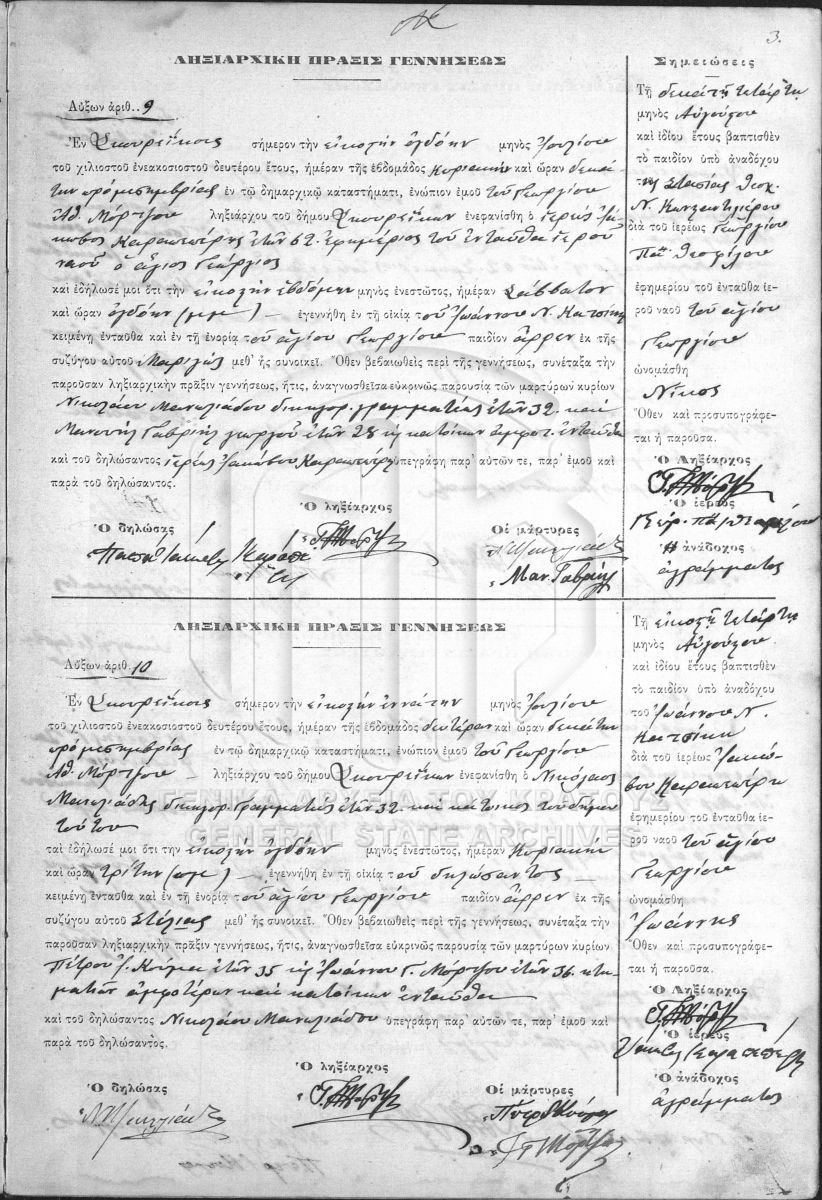 3.
ΛΗΞΙΑΡΧΙΚΗ ΠΡΑΞΙΣ ΓΕΝΝΗΣΕΩΣ
Αὔξων ἀριθ. 9
Ἐν Σκουρεΐκοις σήμερον τὴν εἰκοστὴν ὀγδόην μηνὸς Ἰουλίου
τοῦ χιλιοστοῦ ἐνεακοσιοστοῦ δευτέρου ἔτους, ἡμέραν τῆς ἑβδομάδος Κυριακὴν καὶ ὥραν δεκά-
την πρὸ μεσημβρίας ἐν τῷ δημαρχικῷ καταστήματι, ἐνώπιον ἐμοῦ τοῦ Γεωργίου
Ἀθ. Μόρτζου ληξιάρχου τοῦ δήμου Σκουρεΐκων ἐνεφανίσθη ὁ ἱερεὺς Ἰά-
κωβος ἐτῶν 62 ἐφημέριος τοῦ ἐνταῦθα ἱεροῦ
ναοῦ ὁ ἅγιος Γεώργιος
καὶ ἐδήλωσέ μοι ὅτι τὴν εἰκοστὴν ἑβδόμην μηνὸς ἐνεστῶτος, ἡμέραν Σάββατον
καὶ ὥραν ὀγδόην (μμ) — ἐγεννήθη ἐν τῇ οἰκίᾳ τοῦ Ἰωάννου Ν. Κατσίκη
κειμένῃ ἐνταῦθα καὶ ἐν τῇ ἐνορίᾳ τοῦ ἁγίου Γεωργίου παιδίον ἄρρεν ἐκ τῆς
συζύγου αὐτοῦ Μαριγῶς μεθ' ἧς συνοικεῖ. Ὅθεν βεβαιωθεὶς περὶ τῆς γεννήσεως, συνέταξα τὴν
παροῦσαν ληξιαρχικὴν πρᾶξιν γεννήσεως, ἥτις, ἀναγνωσθεῖσα εὐκρινῶς παρουσίᾳ τῶν μαρτύρων κυρίων
Νικολάου Μανωλιάδου δικηγορ. γραμματέως ἐτῶν 32 καὶ
Μανουὴλ Γαβριὴλ γεωργοῦ ἐτῶν 28 κατοίκων ἀμφοτ. ἐνταῦθα
καὶ τοῦ δηλώσαντος ἱερέως Ἰακώβου ὑπεγράφη παρ' αὐτῶν τε, παρ' ἐμοῦ καὶ
παρὰ τοῦ δηλώσαντος.
Ὁ ληξίαρχος
Ὁ δηλώσας
Οἱ μάρτυρες
Μαν. Γαβριὴλ
Σημειώσεις
Τῇ δεκάτῃ τετάρτῃ
μηνὸς Αὐγούστου
καὶ ἰδίου ἔτους βαπτισθὲν
τὸ παιδίον ὑπὸ ἀναδόχου
τῆς
διὰ τοῦ ἱερέως Γεωργίου
Παπᾶ Θεοφίλου
ἐφημερίου τοῦ ἐνταῦθα ἱε-
ροῦ ναοῦ τοῦ ἁγίου
Γεωργίου
ὠνομάσθη
Νίκος
Ὅθεν καὶ προσυπογράφε-
ται ἡ παροῦσα.
Ὁ Ληξίαρχος
Ὁ ἱερεὺς
Ἡ ἀνάδοχος
ἀγράμματος
ΛΗΞΙΑΡΧΙΚΗ ΠΡΑΞΙΣ ΓΕΝΝΗΣΕΩΣ
Αὔξων ἀριθ. 10
Ἐν Σκουρεΐκοις σήμερον τὴν εἰκοστὴν ἐννάτην μηνὸς Ἰουλίου
τοῦ χιλιοστοῦ ἐνεακοσιοστοῦ δευτέρου ἔτους, ἡμέραν τῆς ἑβδομάδος δευτέραν καὶ ὥραν δεκάτην
πρὸ μεσημβρίας ἐν τῷ δημαρχικῷ καταστήματι, ἐνώπιον ἐμοῦ τοῦ Γεωργίου
Ἀθ. Μόρτζου ληξιάρχου τοῦ δήμου Σκουρεΐκων ἐνεφανίσθη ὁ Νικόλαος
Μανωλιάδης δικηγορ. Γραμματεὺς ἐτῶν 32 καὶ κάτοικος τοῦ δήμου
τούτου
καὶ ἐδήλωσέ μοι ὅτι τὴν εἰκοστὴν ὀγδόην μηνὸς ἐνεστῶτος, ἡμέραν Κυριακὴν
καὶ ὥραν τρίτην (πμ) — ἐγεννήθη ἐν τῇ οἰκίᾳ τοῦ δηλώσαντος —
κειμένῃ ἐνταῦθα καὶ ἐν τῇ ἐνορίᾳ τοῦ ἁγίου Γεωργίου παιδίον ἄρρεν ἐκ τῆς
συζύγου αὐτοῦ Στέλιας μεθ' ἧς συνοικεῖ. Ὅθεν βεβαιωθεὶς περὶ τῆς γεννήσεως, συνέταξα τὴν
παροῦσαν ληξιαρχικὴν πρᾶξιν γεννήσεως, ἥτις, ἀναγνωσθεῖσα εὐκρινῶς παρουσίᾳ τῶν μαρτύρων κυρίων
Πέτρου ἐτῶν 35 Ἰωάννου Γ. Μόρτζου ἐτῶν 36 κτη-
ματιῶν ἀμφοτέρων καὶ κατοίκων ἐνταῦθα
καὶ τοῦ δηλώσαντος Νικολάου Μανωλιάδου ὑπεγράφη παρ' αὐτῶν τε, παρ' ἐμοῦ καὶ
παρὰ τοῦ δηλώσαντος.
Ὁ ληξίαρχος
Ὁ δηλώσας
Οἱ μάρτυρες
Τῇ εἰκοστῇ τετάρτῃ
μηνὸς Αὐγούστου
καὶ ἰδίου ἔτους βαπτισθὲν
τὸ παιδίον ὑπὸ ἀναδόχου
τοῦ Ἰωάννου Ν.
Κατσίκη
διὰ τοῦ ἱερέως Ἰακώ-
βου
ἐφημερίου τοῦ ἐνταῦθα ἱε-
ροῦ ναοῦ τοῦ ἁγίου
Γεωργίου
ὠνομάσθη
Ἰωάννης
Ὅθεν καὶ προσυπογράφε-
ται ἡ παροῦσα.
Ὁ Ληξίαρχος
Ὁ ἱερεὺς
Ὁ ἀνάδοχος
ἀγράμματος
ΓΕΝΙΚΑ ΑΡΧΕΙΑ ΤΟΥ ΚΡΑΤΟΥΣ
GENERAL STATE ARCHIVES